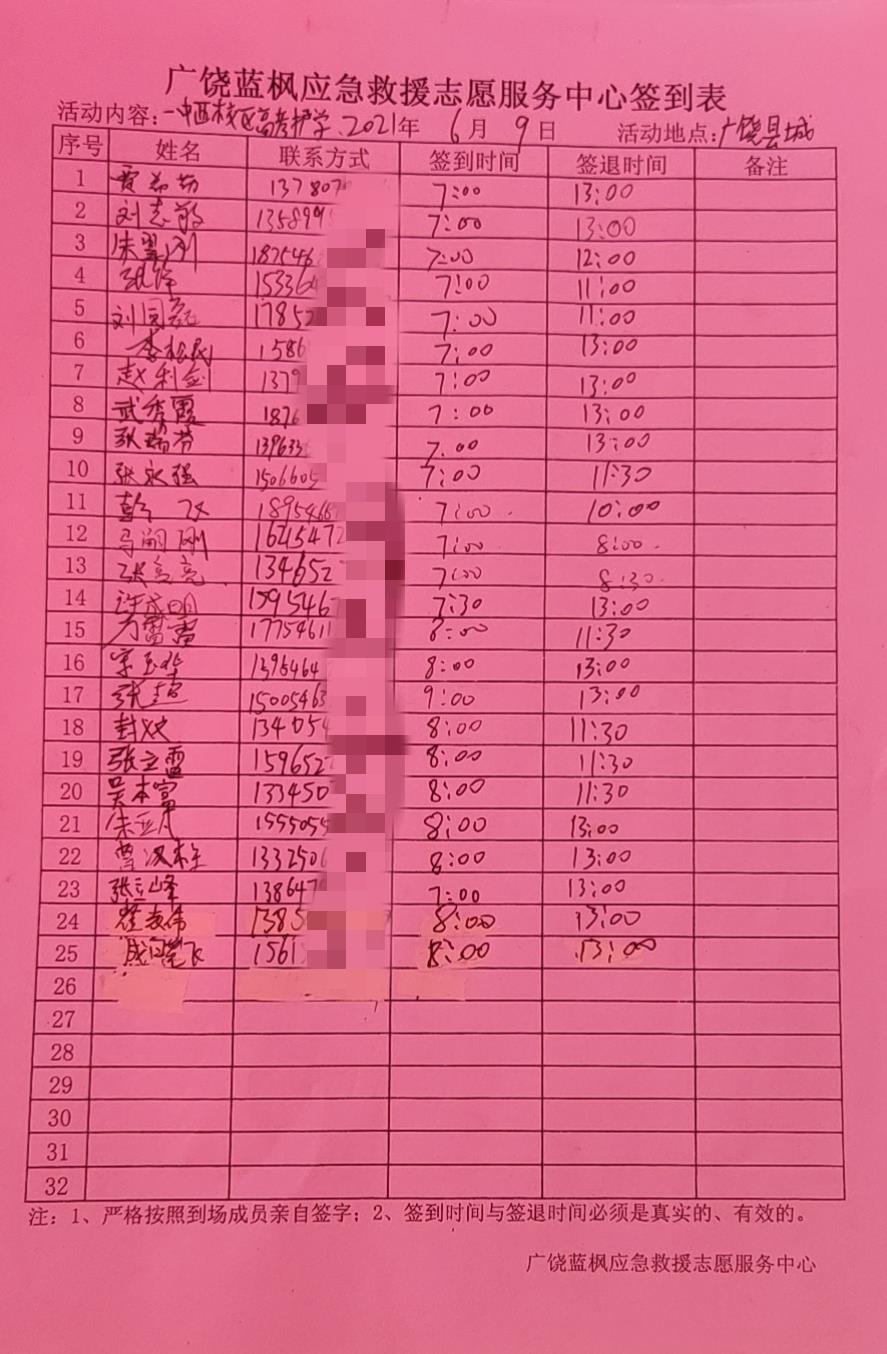 广饶蓝枫应急救援志愿服务中心签到表
活动内容:一中西校区高考护学、2021年 6月 9日 活动地点:广饶县城
序号 姓名 联系方式 签到时间 签退时间 备注
1 137807 7:00 13:00
2 刘志敏 135899 7:00 13:00
3 187546 7:00 12:00
4 15336 7:00 11:00
5 1785 7:00 11:00
6 李松民 1586 7:00 13:00
7 赵利剑 1379 7:00 13:00
8 武秀霞 187 7:00 13:00
9 张瑞芬 139633 7.00 13:00
10 张永强 1506605 7:00 11:30
11 彭飞 1895466 7:00 10:00
12 马嗣刚 1645472 7:00 8:00
13 张亮亮 1346527 7:00 8:30
14 许成明 1595467 7:30 13:00
15 万雷雷 17754611 8:00 11:30
16 宋玉华 1395464 8:00 13:00
17 张超 15005463 9:00 13:00
18 134054 8:00 11:30
19 张立雷 159652 8:00 11:30
20 吴本富 133450 8:00 11:30
21 朱亚凡 1555055 8:00 13:00
22 曹汉柱 1332506 8:00 13:00
23 张立峰 138647 7:00 13:00
24 1385 8:00 13:00
25 1561 8:00 13:00
26
27
28
29
30
31
32
注：1、严格按照到场成员亲自签字；2、签到时间与签退时间必须是真实的、有效的。
广饶蓝枫应急救援志愿服务中心